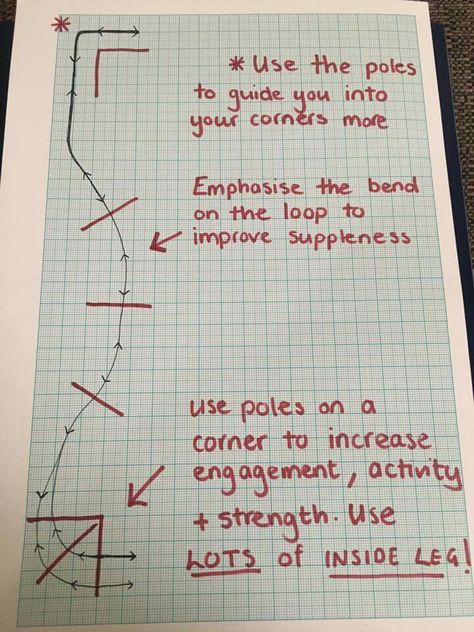 * Use the poles
to guide you into
your corners more
Emphasise the bend
on the loop to
improve suppleness
use poles on a
corner to increase
engagement, activity
+ strength. Use
LOTS of INSIDE LEG!